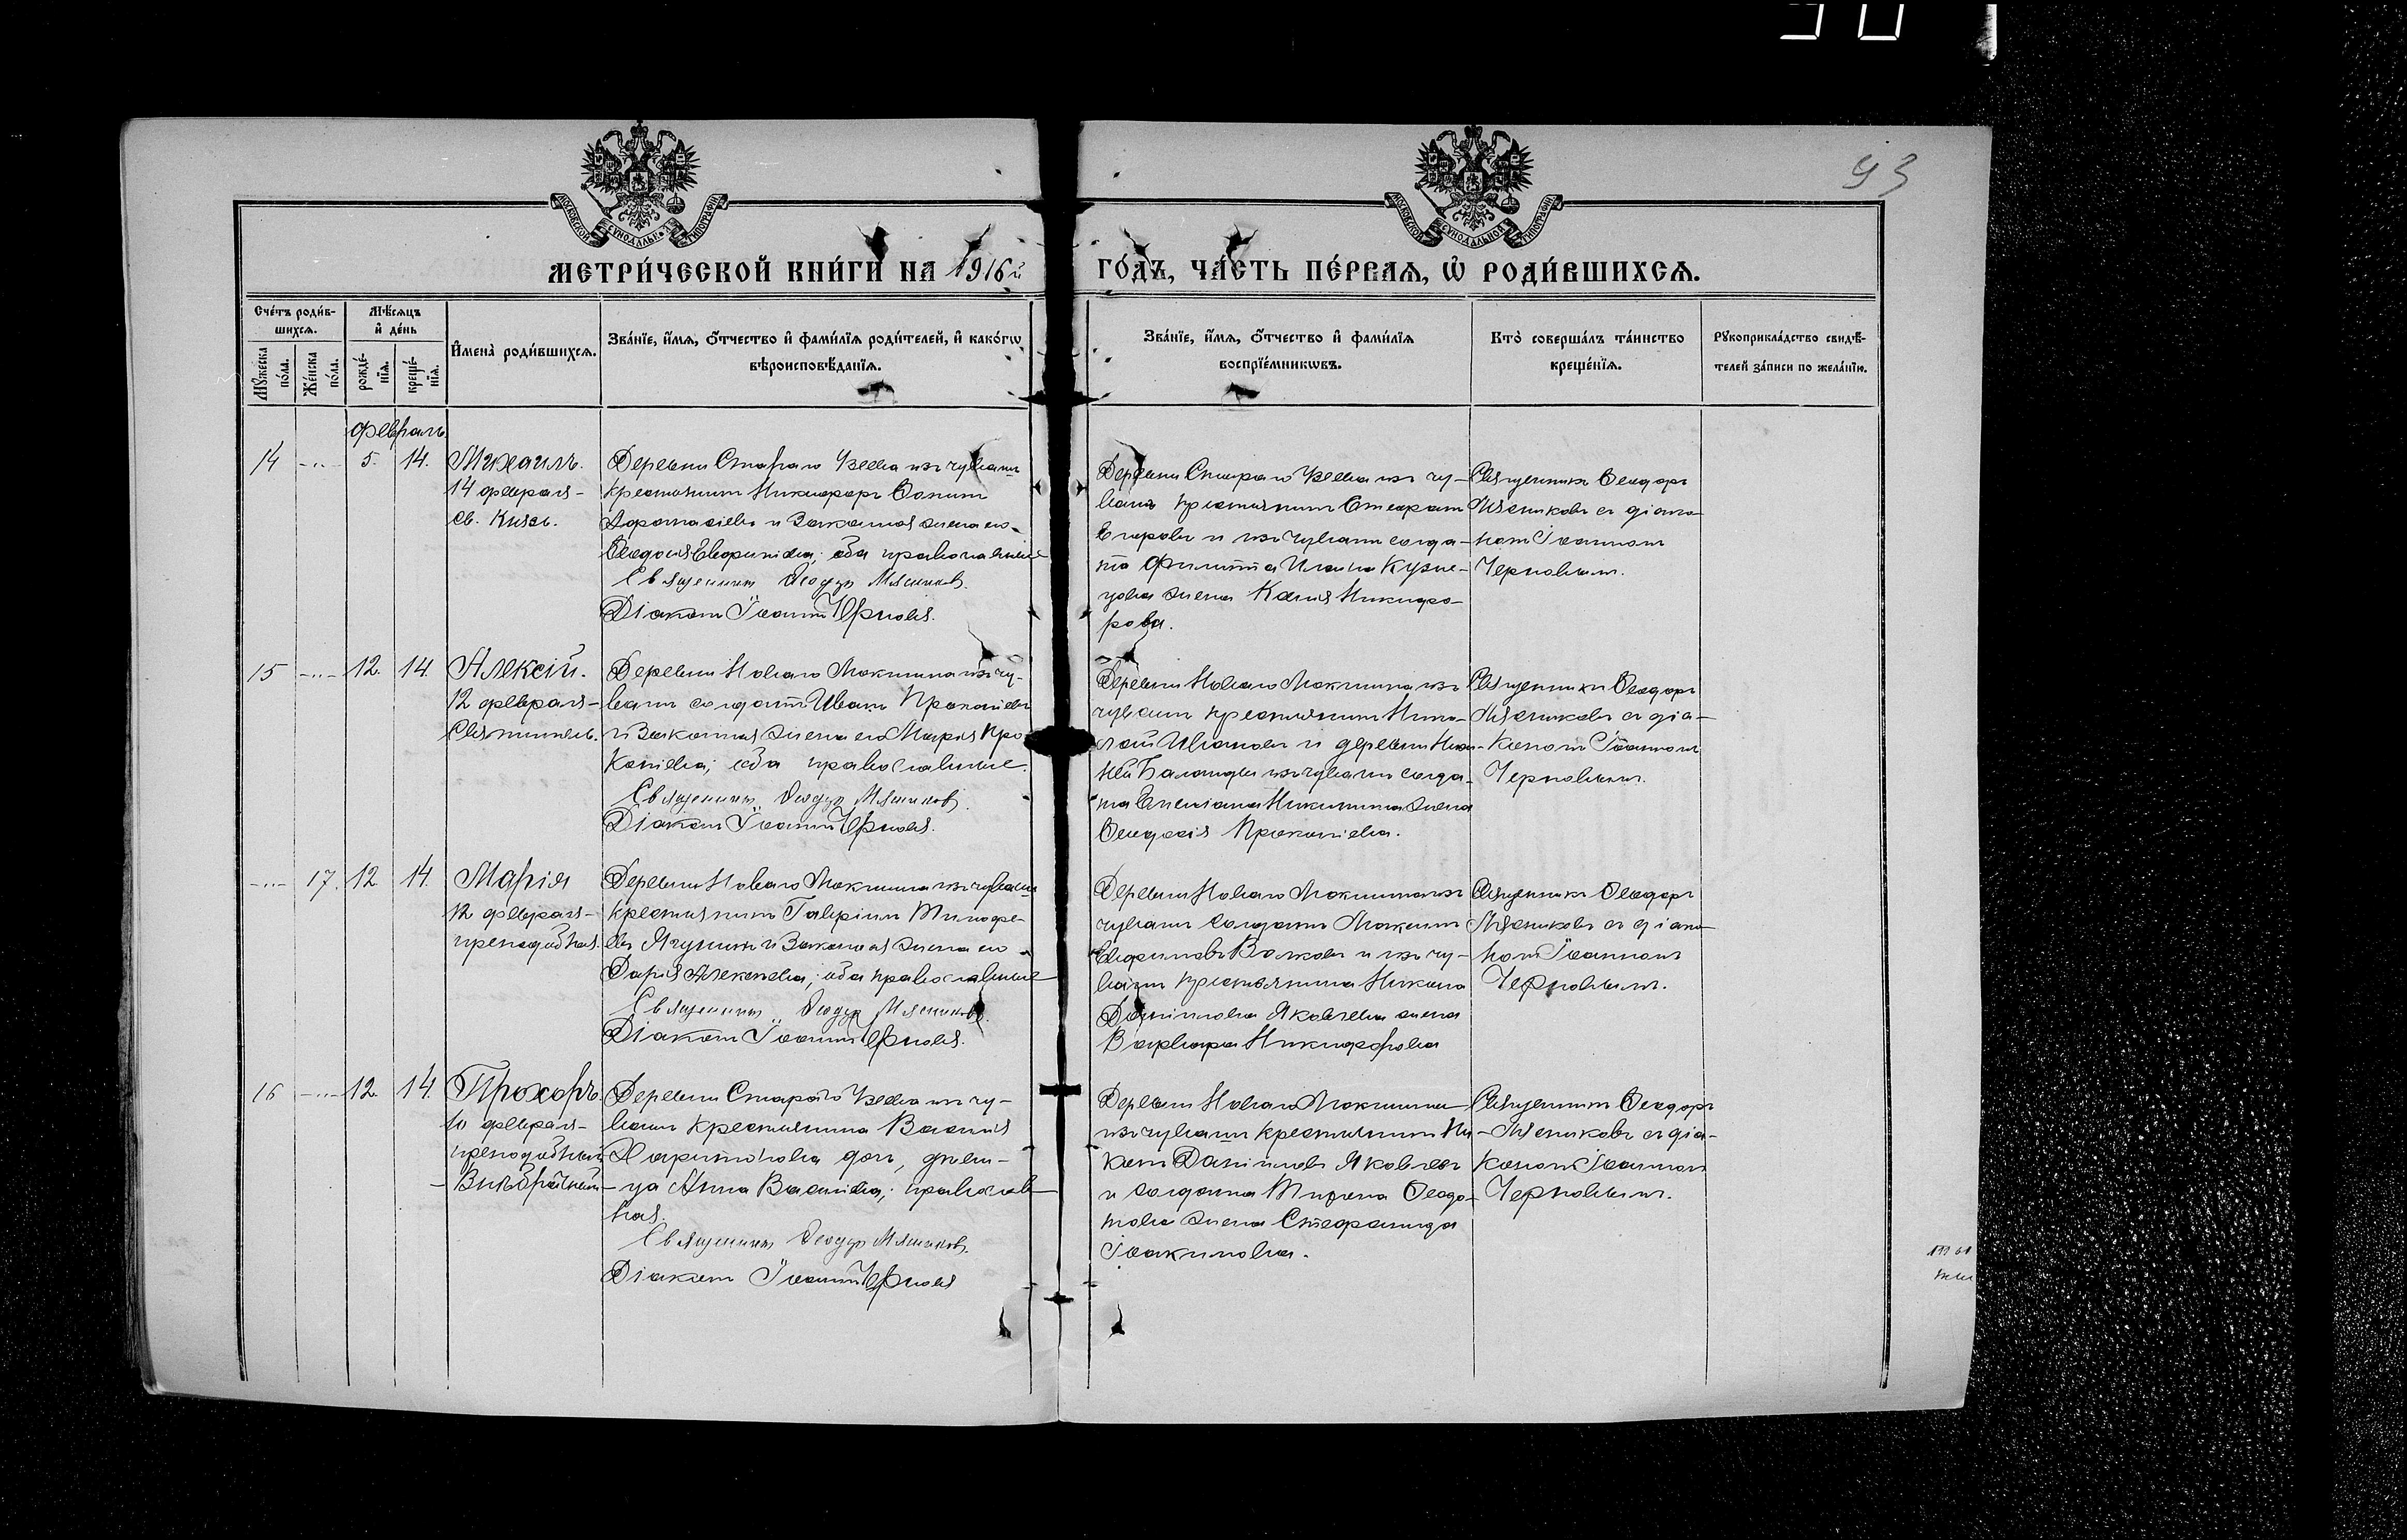 93
МОСКОВСКОЙ СУНОДАЛЬНОЙ ТИПОГРАФІИ
МОСКОВСКОЙ СУНОДАЛЬНОЙ ТИПОГРАФІИ
МЕТРИ́ЧЕСКОЙ КНИ́ГИ НА 1916й ГО́ДЪ, ЧА́СТЬ ПЕ́РВАѦ, Ѡ҆ РОДИ́ВШИХСѦ.
Сче́тъ роди́в-
шихсѧ.
Мꙋ́жеска по́ла.
Же́нска по́ла.
Мѣ́сѧцъ
и҆ де́нь
рожде́-
нїѧ.
креще́-
нїѧ.
И҆мена̀ роди́вшихсѧ.
Зва́нїе, и҆́мѧ, ѻ҆́тчество и҆ фами́лїѧ роди́телей, и҆ како́гѡ
вѣроисповѣ́данїѧ.
Зва́нїе, и҆́мѧ, ѻ҆́тчество и҆ фами́лїѧ
воспрїе́мникѡвъ.
Кто̀ соверша́лъ та́инство
креще́нїѧ.
Рꙋкоприкла́дство свидѣ́-
телей за́писи по жела́нїю.
Февраль
14 -..- 5. 14. Михаилъ.
14 февраля-
св. Князь.
Деревни Стараго Узеева изъ чувашъ
крестьянинъ Никифоръ
и законная жена его
Ѳеодосія; оба православные
Священникъ Ѳеодоръ Мясниковъ.
Діаконъ Іоаннъ Черновъ.
Деревни Стараго Узеева изъ чу-
вашъ крестьянинъ Стефанъ
Егоровъ и изъ чувашъ солда-
та Филиппа Кузне-
цова жена Ксенія Никифо-
рова.
Священникъ Ѳеодоръ
Мясниковъ съ діако-
номъ Іоанномъ
Черновымъ.
15 -..- 12. 14. Алексій.
12 февраля-
Святитель.
Деревни Новаго Мокшина изъ чу-
вашъ солдатъ Иванъ Прокопіевъ
и законная жена его Марія Про-
копіева; оба православные.
Священникъ Ѳеодоръ Мясниковъ.
Діаконъ Іоаннъ Черновъ.
Деревни Новаго Мокшина изъ
чувашъ крестьянинъ Нико-
лай Ивановъ и деревни Ниж-
ней Баланды изъ чувашъ солда-
та Емеліана Никитина жена
Ѳеодосія Прокопіева.
Священникъ Ѳеодоръ
Мясниковъ съ діа-
кономъ Іоанномъ
Черновымъ.
-..- 17. 12 14. Марія
12 февраля-
преподобная.
Деревни Новаго Мокшина изъ чувашъ
крестьянинъ Гавріилъ Тимофе-
евъ Ягунинъ и законная жена его
Дарія Алексеева; оба православные
Священникъ Ѳеодоръ Мясниковъ.
Діаконъ Іоаннъ Черновъ.
Деревни Новаго Мокшина изъ
чувашъ солдатъ Максимъ
Евфимовъ Волковъ и изъ чу-
вашъ крестьянина Никона
Даніилова Яковлева жена
Варвара Никифорова
Священникъ Ѳеодоръ
Мясниковъ съ діако-
номъ Іоанномъ
Черновымъ.
16 -..- 12. 14. Прохоръ.
10 февраля-
преподобный
- Внѣбрачный
Деревни Стараго Узеева изъ чу-
вашъ крестьянина Василія
Харитонова дочь, деви-
ца Анна Васильева; православ-
ная.
Священникъ Ѳеодоръ Мясниковъ.
Діаконъ Іоаннъ Черновъ
Деревни Новаго Мокшина
изъ чувашъ крестьянинъ Ни-
конъ Даніиловъ Яковлевъ
и солдата Ѳеодо-
това жена Стефанида
Іоакимова.
Священникъ Ѳеодоръ
Мясниковъ съ діа-
кономъ Іоанномъ
Черновымъ.